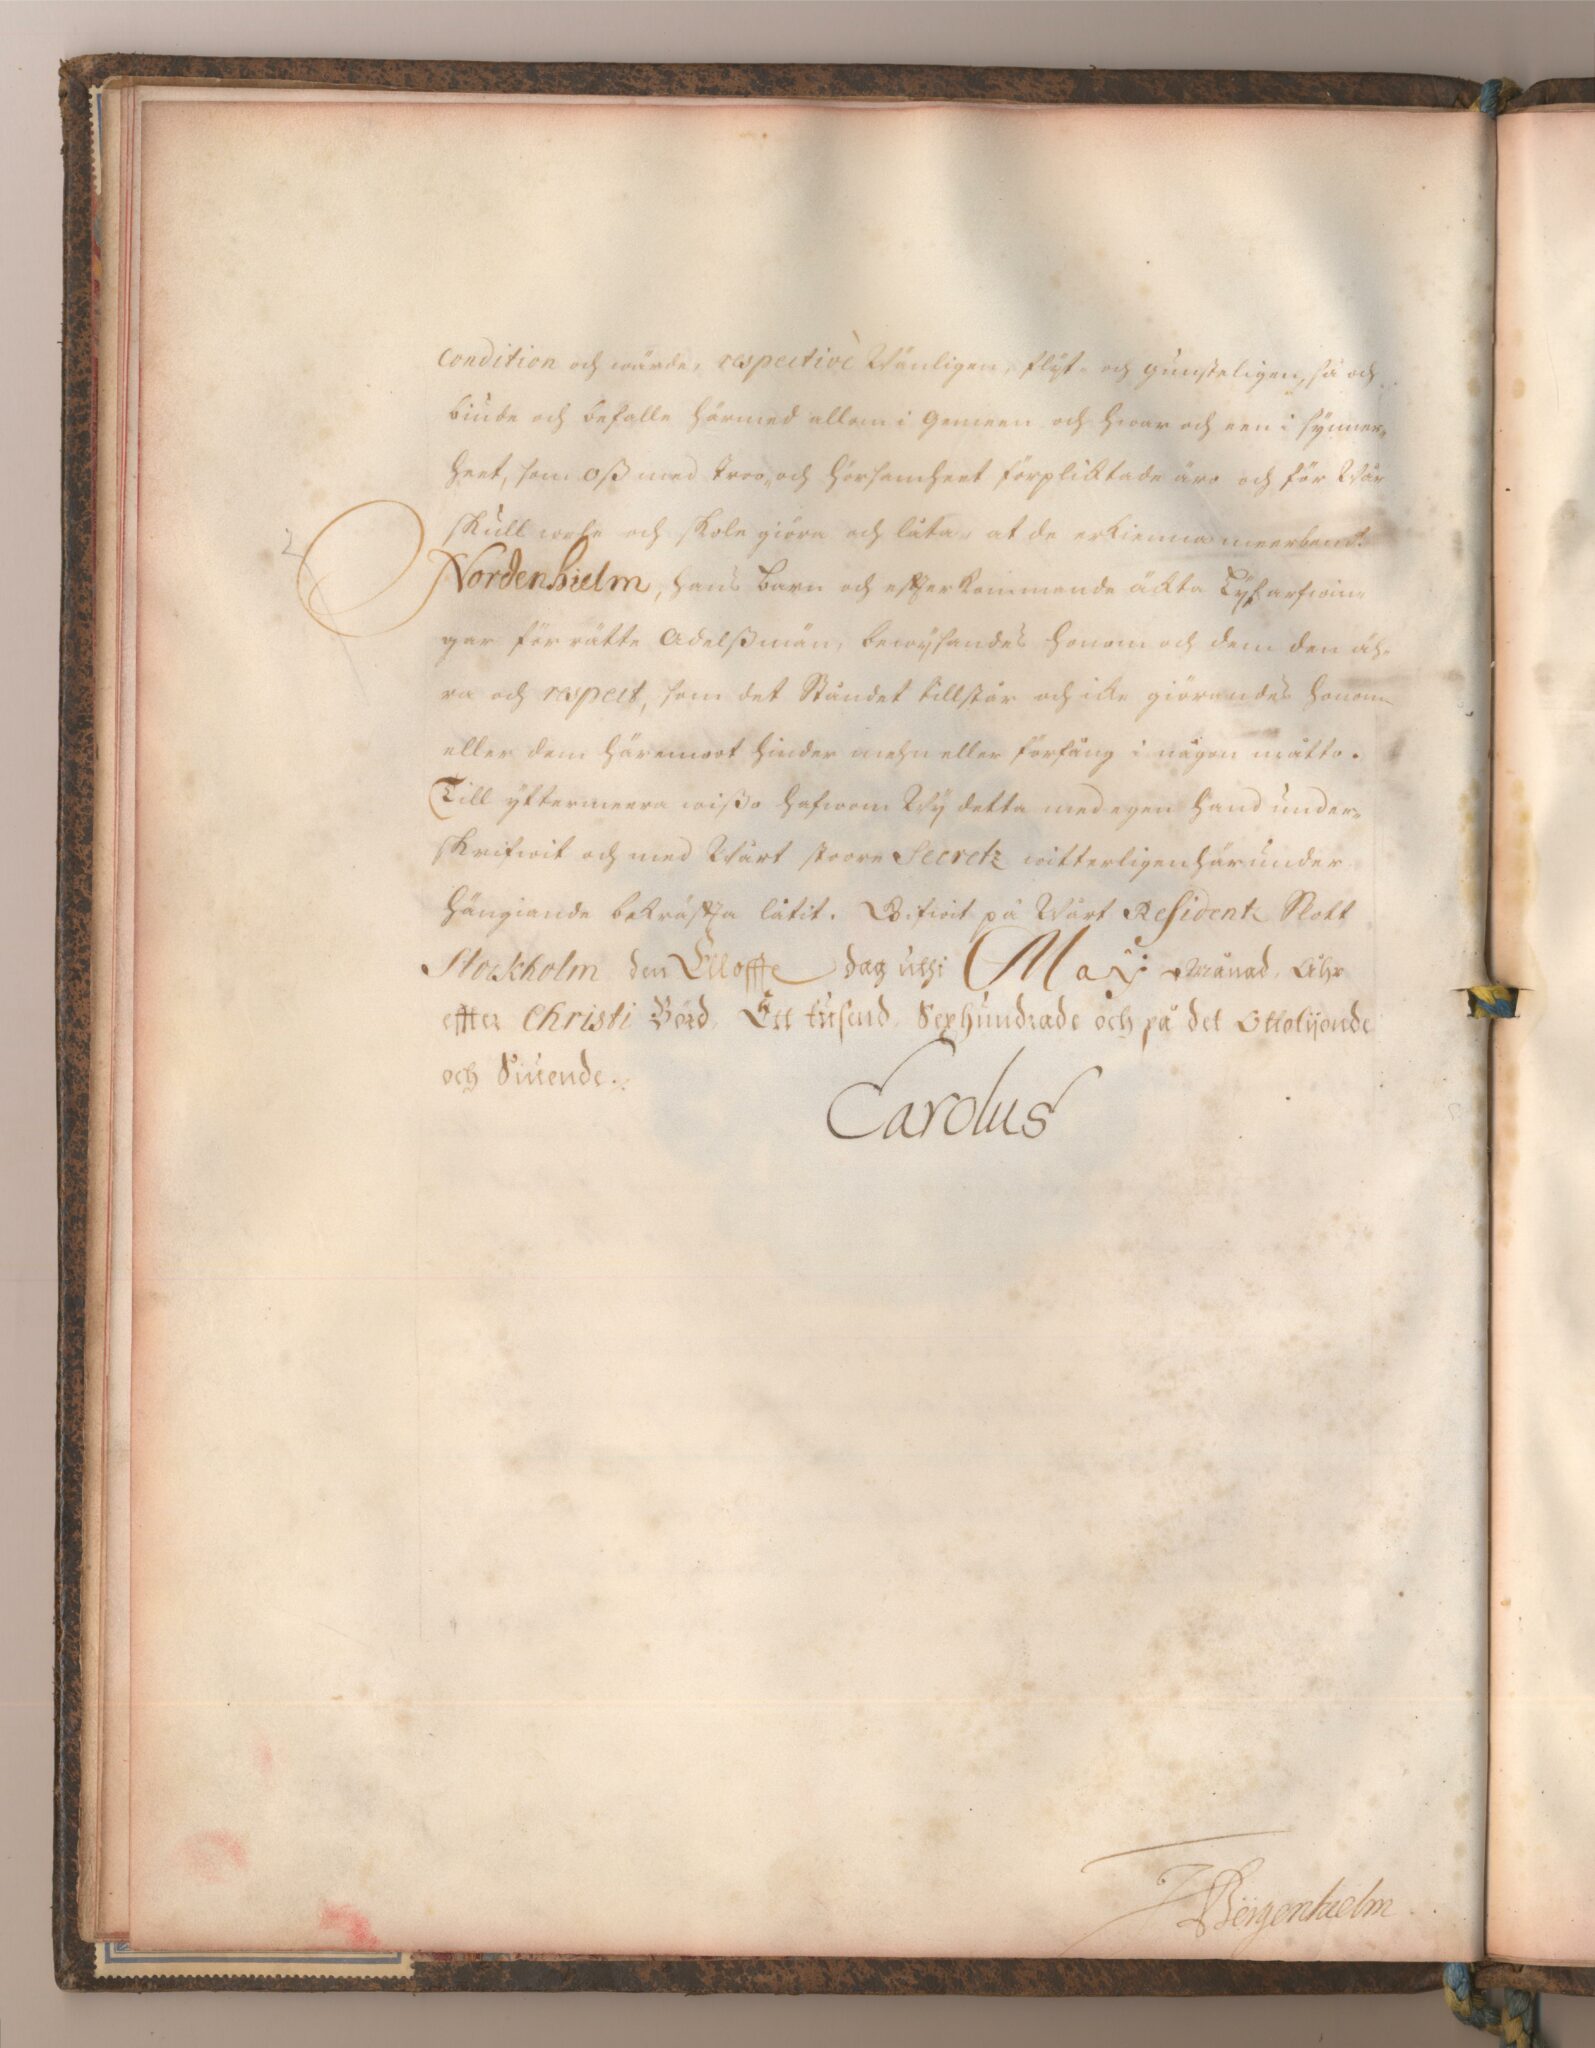 Condition och wärde, respectivè Wänligen, flijt- och gunsteligen, så och
biude och befalle härmed allom i Gemeen och hwar och een i synner-
heet, som Oß med troo- och hörsamheet förplicktade äro och för Wår
skull wele och skole giöra och låta, at de erkienna meerbemt.
Nordenhielm, hans barn och effterkommande äkta Lijfsarfwin-
gar för rätte Adelßmän, bewijsandes honom och dem den äh-
ra och respect, som det Ståndet tillstår och icke giörandes honom
eller dem häremoot hinder mehn eller förfång i någon måtto.
Till yttermeera wißo hafwom Wij detta med egen hand under-
skrifwit och med Wårt stoore Secretz witterligen härunder
hängiande bekräffta låtit. Gifwit på Wårt Residentz Slott
Stockholm den Elloffte dag uthi Maij Månad, Åhr
effter Christi Börd, Ett tusend Sexhundrade och på det Ottotijonde
och Siuende.
Carolus
J Bergenhielm